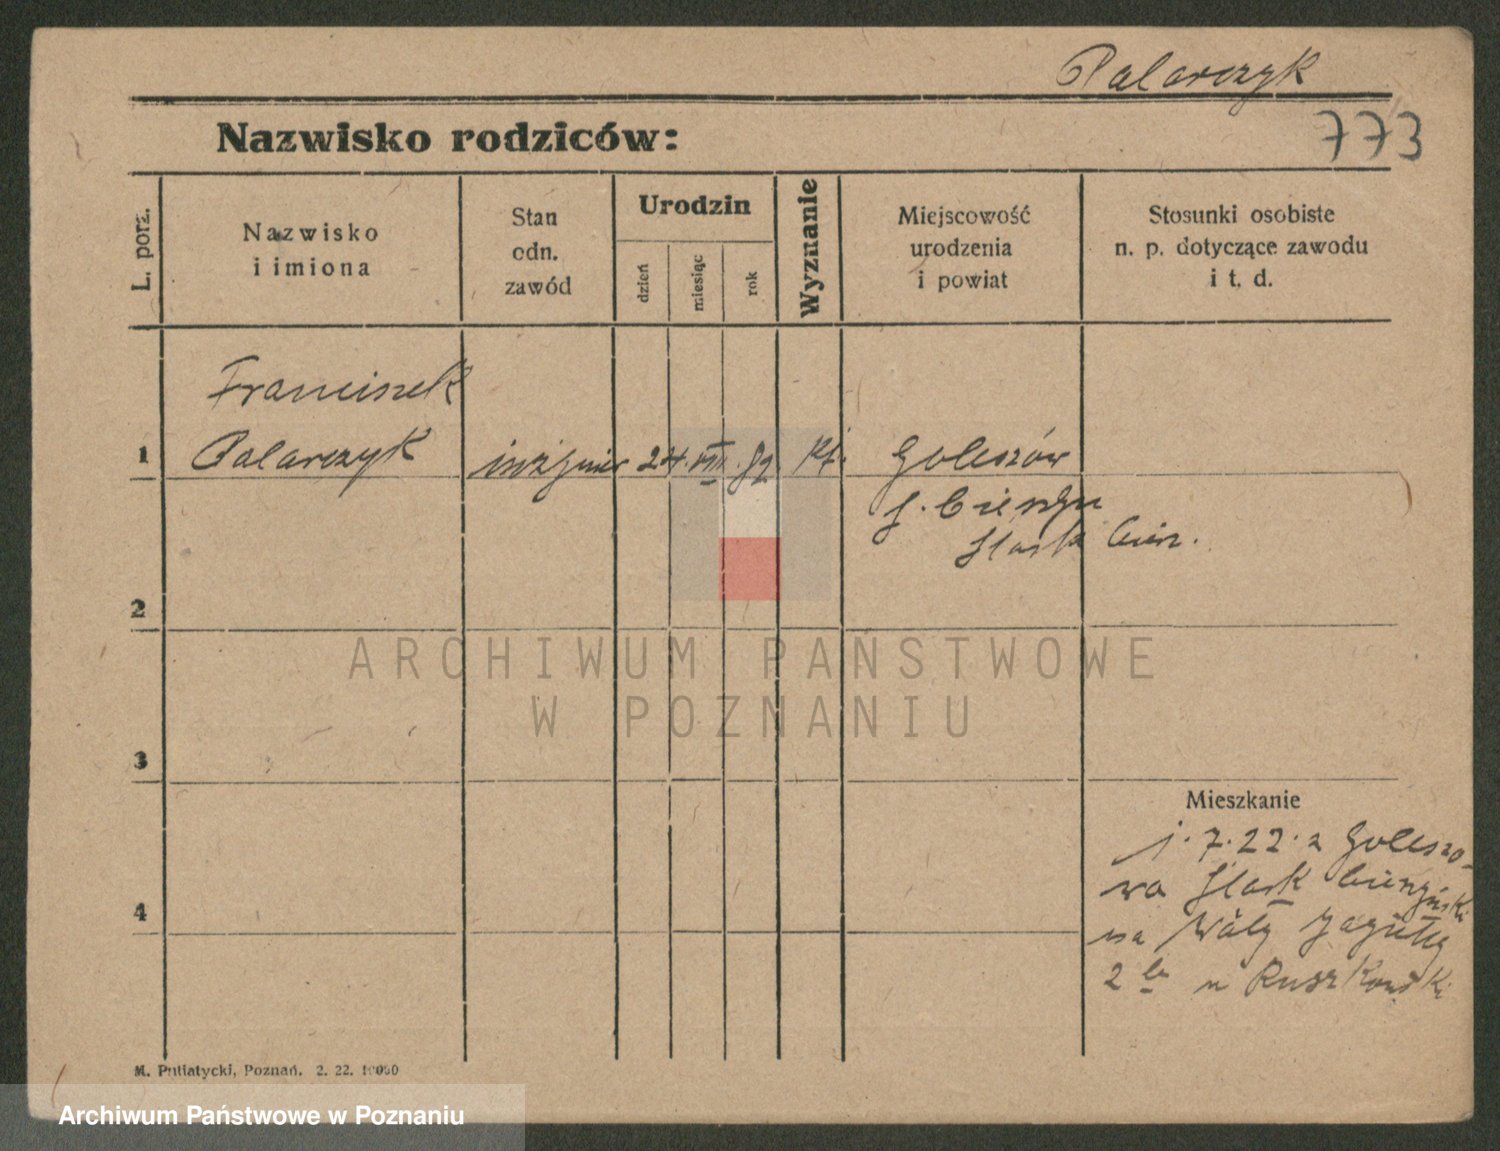 Palarczyk
773
Nazwisko rodziców:
L. porz.
Nazwisko
i imiona
Stan
cdn.
zawód
Urodzin
dzień
miesiąc
rok
Wyznanie
Miejscowość
urodzenia
i powiat
Stosunki osobiste
n. p. dotyczące zawodu
i t. d.
Franciszek
1 Palarczyk inżynier 24. VIII. 89 kt. Goleszów
Śląsk Ciesz.
2
3
4
Mieszkanie
1.7.22. z Goleszo-
wa Śląsk Cieszyński
na Wały Jagiełły
2 u Ruszkowski
M. Putiatycki, Poznań. 2. 22. 10000
ARCHIWUM PAŃSTWOWE
W POZNANIU
Archiwum Państwowe w Poznaniu